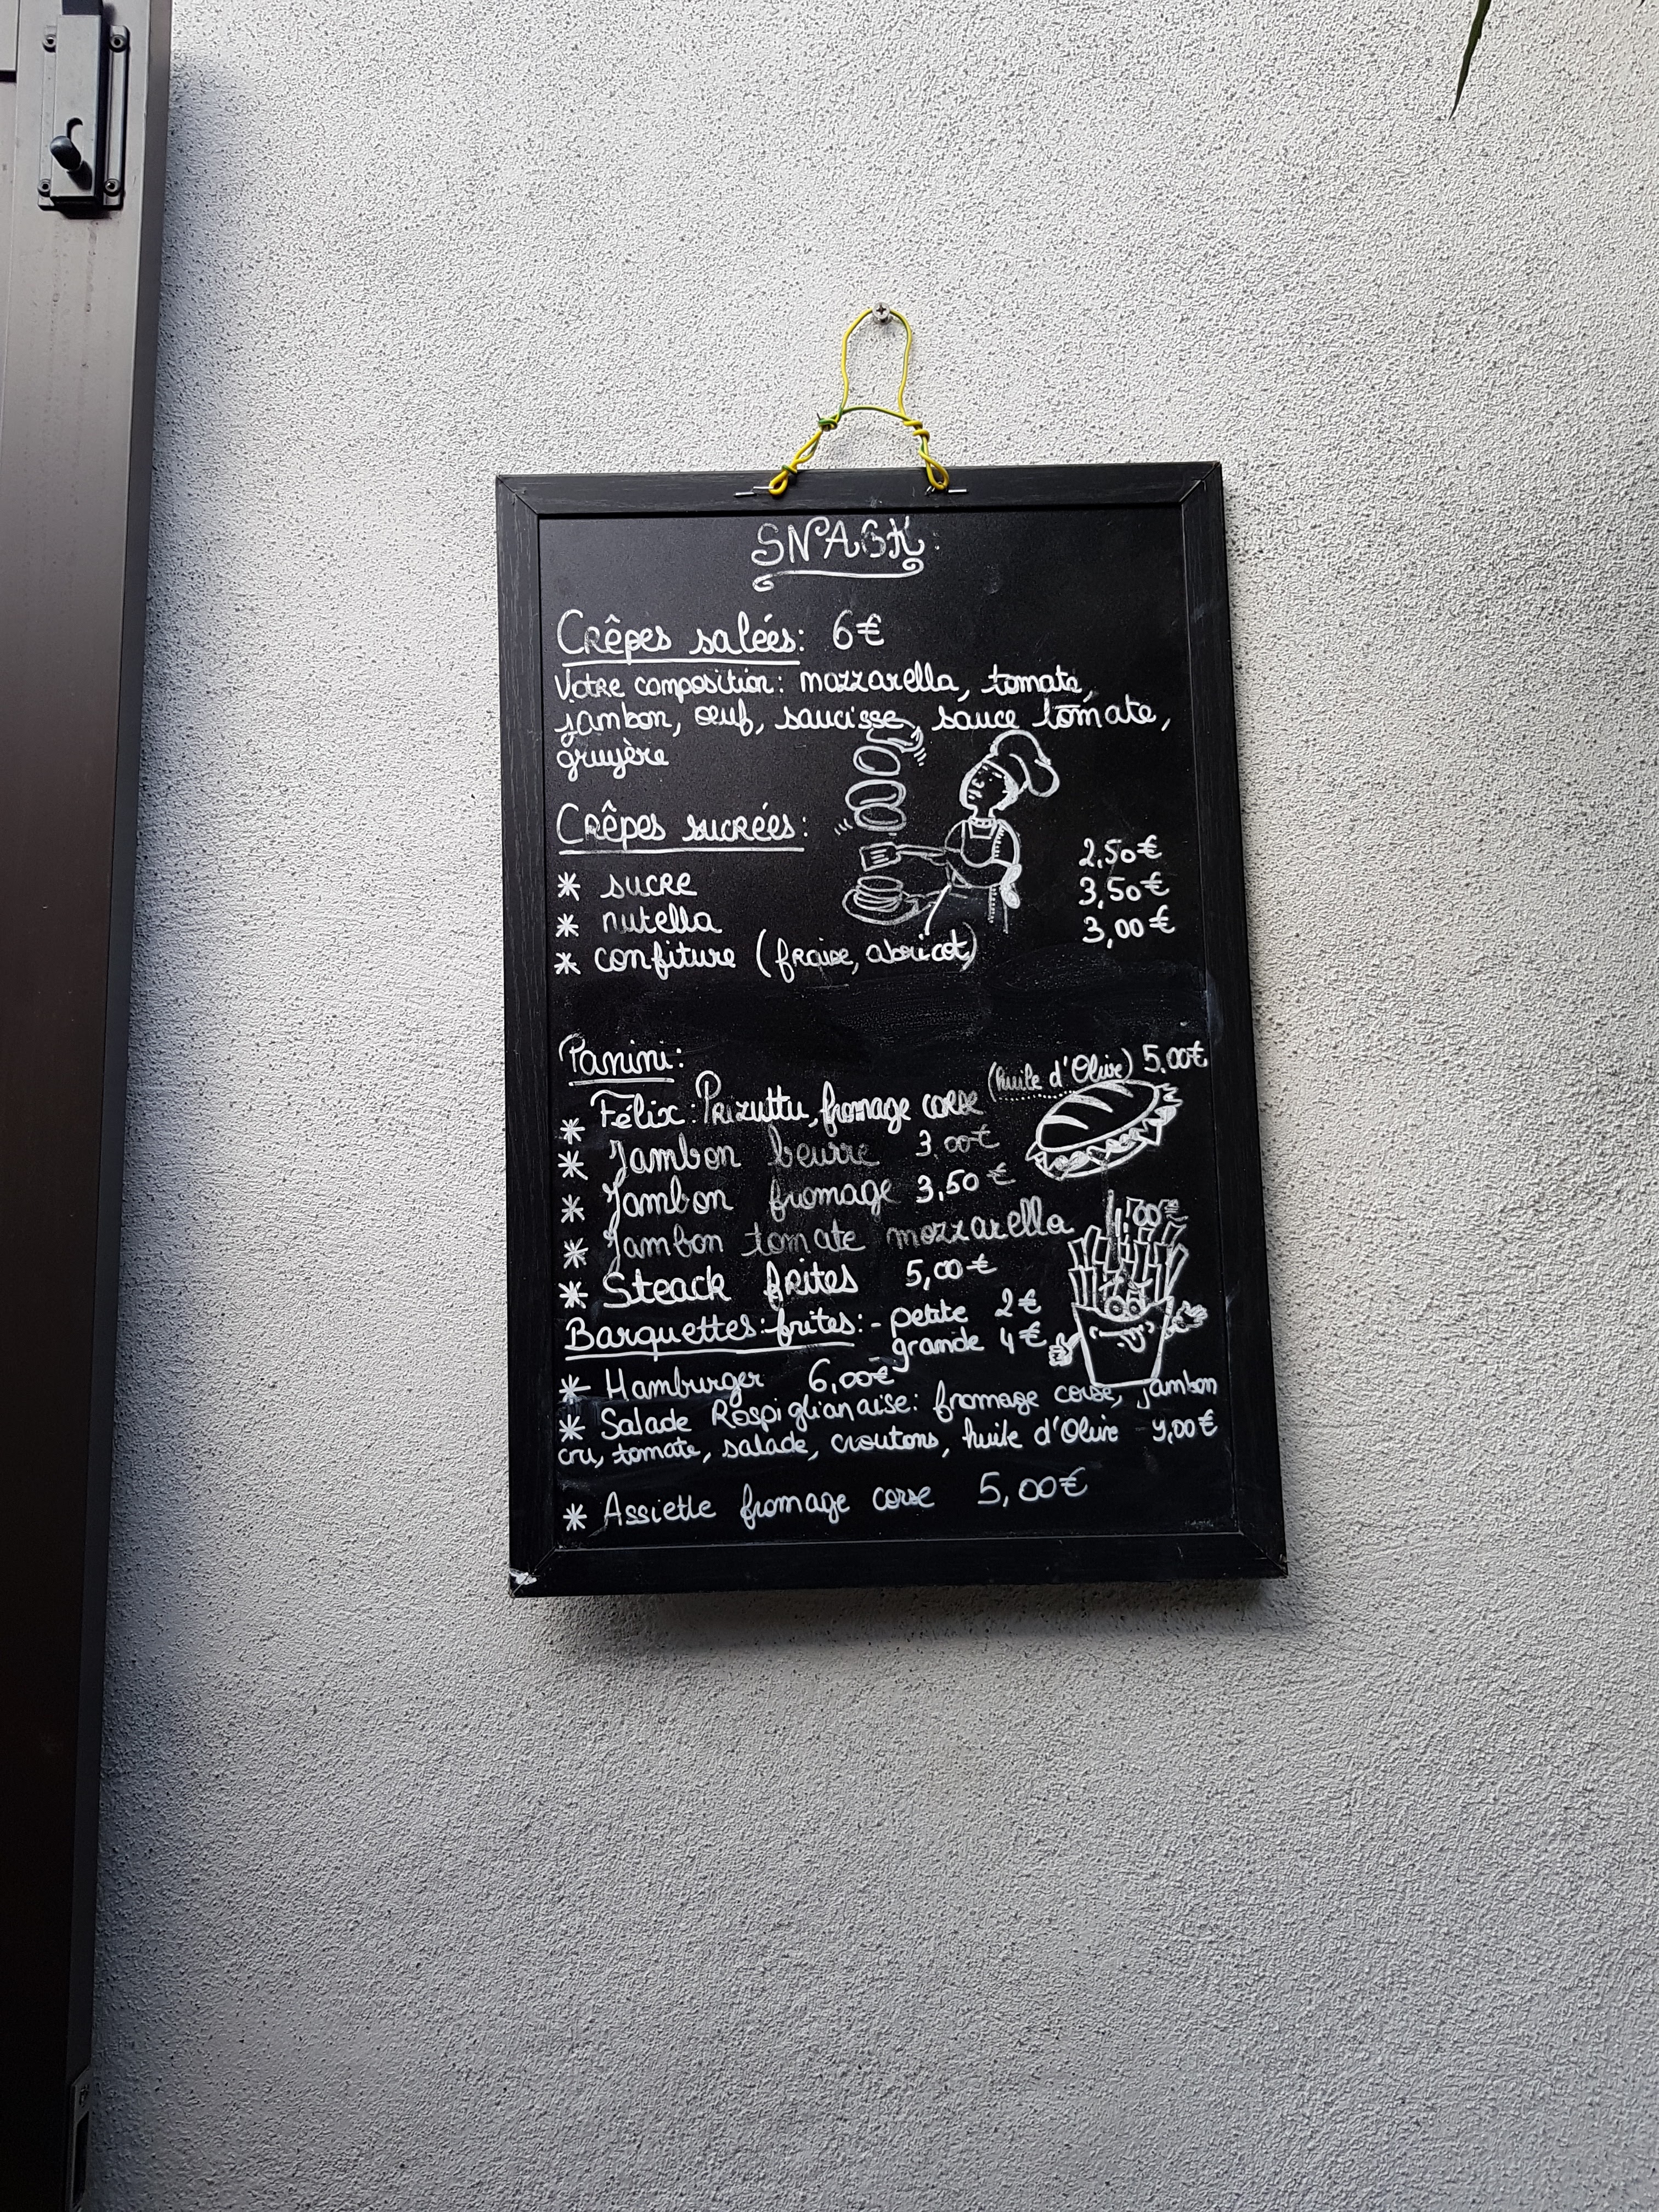 SNACK:
Crêpes salées: 6€
Votre composition: mozzarella, tomate,
jambon, œuf, saucisse, sauce tomate,
gruyère
Crêpes sucrées:
* sucre 2,50€
* nutella 3,50€
* confiture (fraise, abricot) 3,00€
Panini:
* Félix: Prizuttu, fromage corse (huile d'Olive) 5,00€
* Jambon beurre 3,00€
* Jambon fromage 3,50€
* Jambon tomate mozzarella
* Steack frites 5,00€
Barquettes frites: - petite 2€
grande 4€
* Hamburger 6,00€
* Salade Rospiglianaise: fromage corse, jambon
cru, tomate, salade, croutons, huile d'Olive 9,00€
* Assiette fromage corse 5,00€